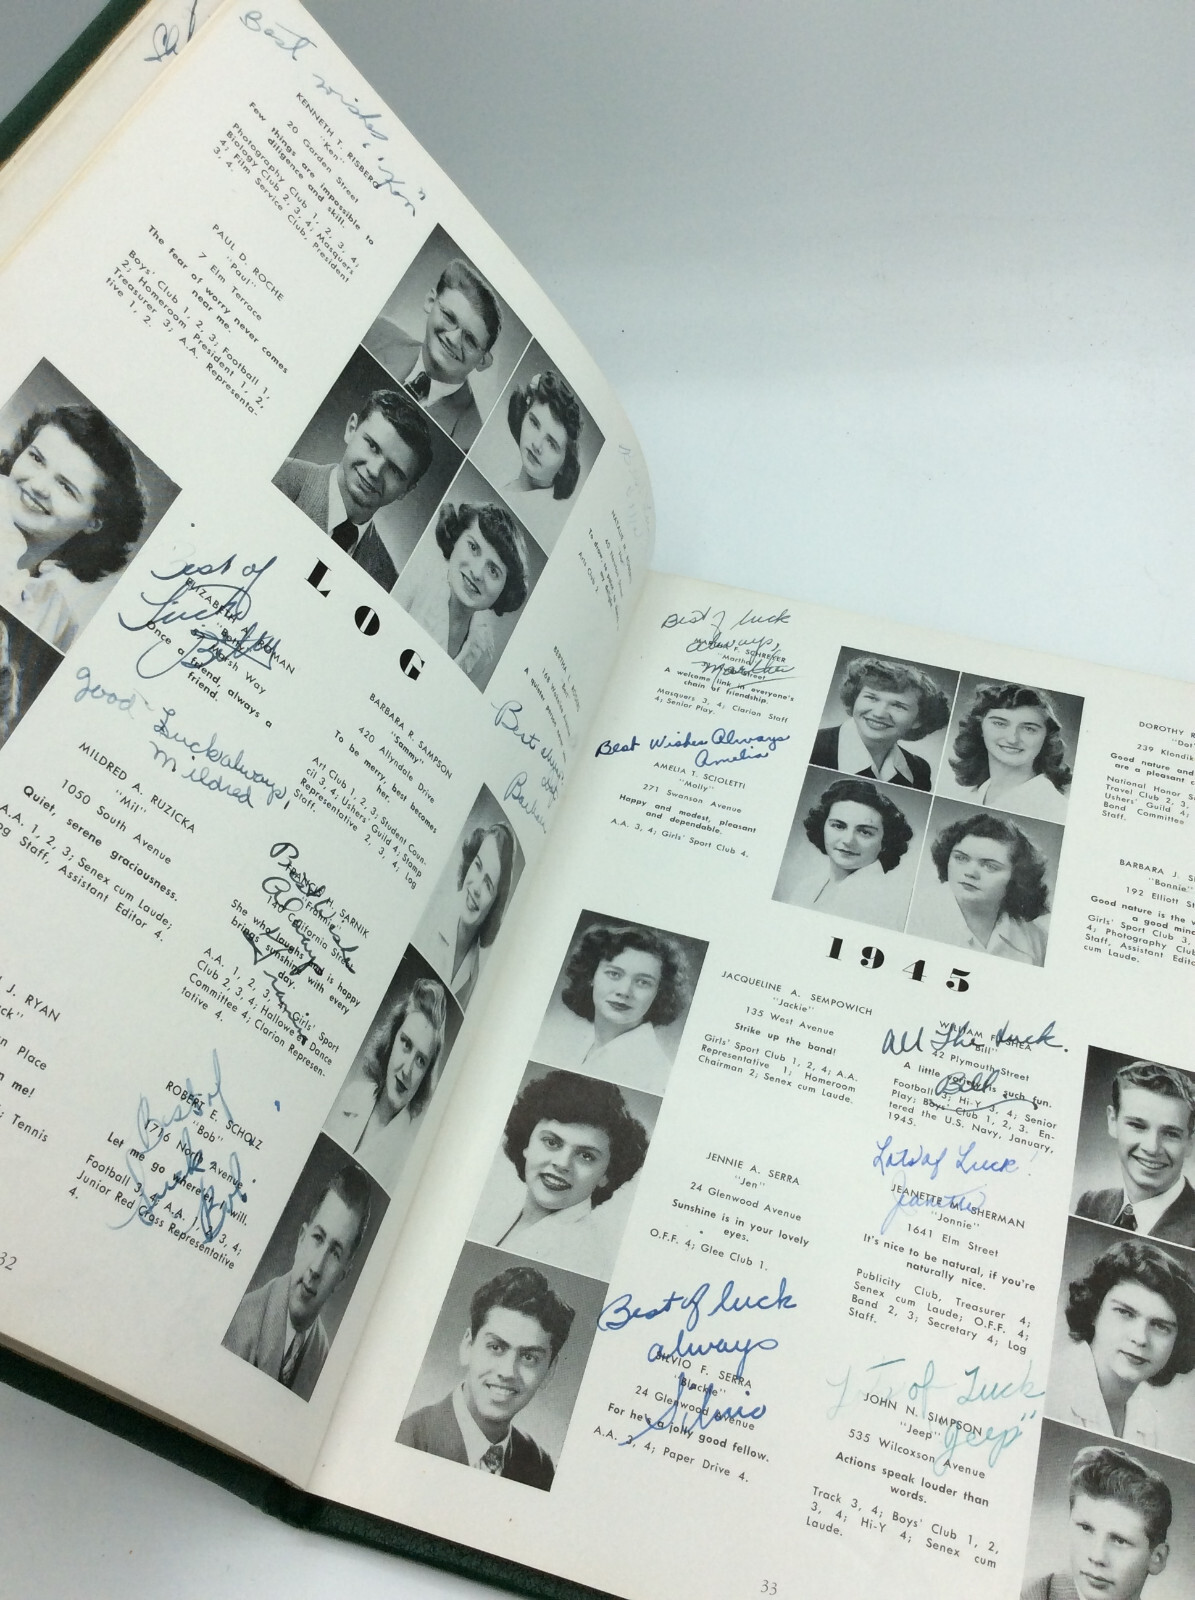 Best
wishes,
"Ken"
KENNETH T. RISBERG
"Ken"
20 Garden Street
Few things are impossible to
diligence and skill.
Photography Club 1, 2, 3, 4;
Biology Club 2, 3, 4; Masquers
4; Film Service Club, President
3, 4.
PAUL D. ROCHE
"Paul"
7 Elm Terrace
The fear of worry never comes
near me.
Boys' Club 1, 2, 3; Football 1,
2; Homeroom President 1, 2,
Treasurer 3; A.A. Representa-
tive 1, 2.
LOG
Best of
Luck
ELIZABETH A.
Way
Once a friend, always a
friend.
good Luck always,
Mildred
MILDRED A. RUZICKA
"Mil"
1050 South Avenue
Quiet, serene graciousness.
A.A. 1, 2, 3; Senex cum Laude;
Log Staff, Assistant Editor 4.
J. RYAN
in Place
n me!
; Tennis
BARBARA R. SAMPSON
"Sammy"
420 Allyndale Drive
To be merry, best becomes
her.
Art Club 1, 2, 3; Student Coun-
cil 3, 4; Ushers' Guild 4; Stamp
Representative 2, 3, 4; Log
Staff.
Best wishes
Always
Frannie
M. SARNIK
"Frannie"
California Street
She who laughs is happy
brings sunshine with every
day.
A.A. 1, 2, 3, 4; Girls' Sport
Club 2, 3, 4; Hallowe'en Dance
Committee 4; Clarion Represen-
tative 4.
Best of
Luck
Bob
ROBERT E. SCHOLZ
"Bob"
1716 North Avenue
Let me go where'er I will.
Football 3, 4; A.A. 1, 2, 3, 4;
Junior Red Cross Representative
4.
32
Best of luck
always,
Martha
F. SCHREYER
"Martha"
Street
A welcome link in everyone's
chain of friendship.
Masquers 3, 4; Clarion Staff
4; Senior Play.
Best Wishes Always
Amelia
AMELIA T. SCIOLETTI
"Molly"
271 Swanson Avenue
Happy and modest, pleasant
and dependable.
A.A. 3, 4; Girls' Sport Club 4.
DOROTHY R
"Dot
239 Klondik
Good nature and
are a pleasant c
National Honor S
Travel Club 2, 3,
Ushers' Guild 4;
Band Committee
Staff.
BARBARA J. S
"Bonnie"
192 Elliott St
Good nature is the v
a good mind
Girls' Sport Club 3,
4; Photography Club
Staff, Assistant Edito
cum Laude.
1945
JACQUELINE A. SEMPOWICH
"Jackie"
135 West Avenue
Strike up the band!
Girls' Sport Club 1, 2, 4; A.A.
Representative 1; Homeroom
Chairman 2; Senex cum Laude.
JENNIE A. SERRA
"Jen"
24 Glenwood Avenue
Sunshine is in your lovely
eyes.
O.F.F. 4; Glee Club 1.
Best of luck
always
Silvio
SILVIO F. SERRA
"Blackie"
24 Glenwood Avenue
For he's a jolly good fellow.
A.A. 3, 4; Paper Drive 4.
All The Luck.
Bill
WILLIAM F.
"Bill"
42 Plymouth Street
A little is such fun.
Football 3; Hi-Y 3, 4; Senior
Play; Boys' Club 1, 2, 3. En-
tered the U.S. Navy, January,
1945.
Lots of Luck!
Jeanette
JEANETTE M. SHERMAN
"Jonnie"
1641 Elm Street
It's nice to be natural, if you're
naturally nice.
Publicity Club, Treasurer 4;
Senex cum Laude; O.F.F. 4;
Band 2, 3; Secretary 4; Log
Staff.
Lots of Luck
"Jeep"
JOHN N. SIMPSON
"Jeep"
535 Wilcoxson Avenue
Actions speak louder than
words.
Track 3, 4; Boys' Club 1, 2,
3, 4; Hi-Y 4; Senex cum
Laude.
33